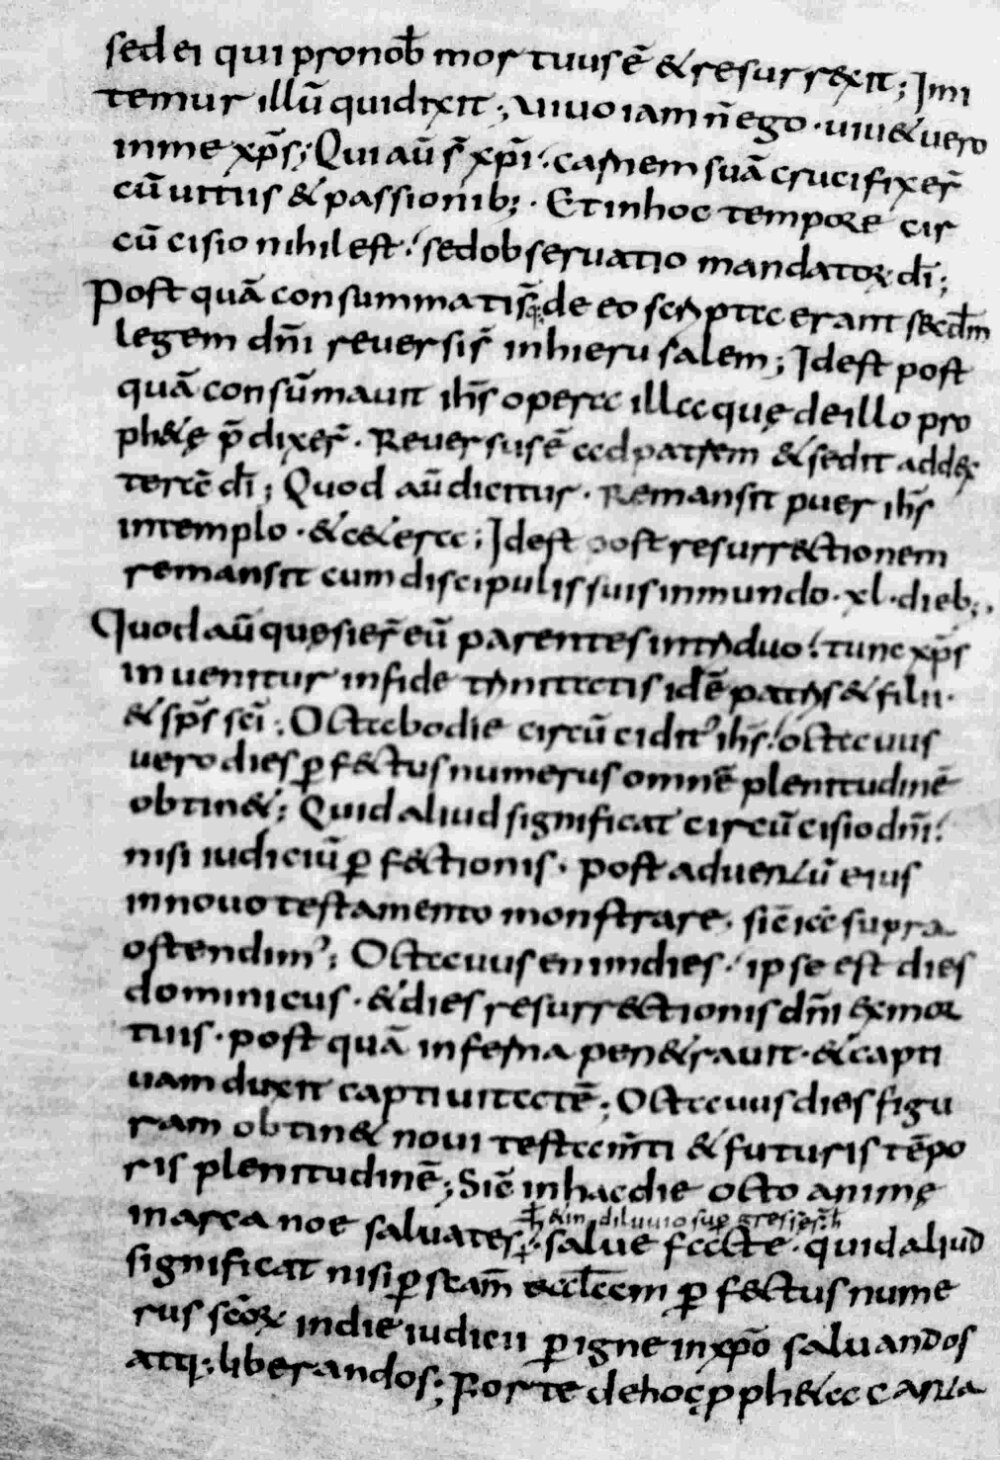 sed ei qui pro nob̄ mortuus ē & resurrexit; Imi
temur illū qui dixit; uiuo iam n̄ ego · uiu& uero
in me xp̄s; Qui aū s̄ xp̄i · carnem suā crucifixer̄
cū uitiis & passionib; · Et in hoc tempore cir
cūcisio nihil est · sed obseruatio mandatoꝝ dī;
Post quā consummatis de eo scripta erant secd̄m
legem dn̄i reuersis̄ in hierusalem; Id est post
quā consūmauit ih̄s opera illa quę de illo pro
ph&ę p̄dixer̄ · Reuersus ē ad patrem & sedit ad dex
terā dī; Quod aū dicitur · Remansit puer ih̄s
in templo · & c&era; Id est post resurrectionem
remansit cum discipulis suis in mundo · xl · dieb;
Quod aū quęsier̄ eū parentes in triduo · tunc xp̄s
inuenitur in fide trinitatis id ē patris & filii ·
& sp̄s sc̄i; Octabo die circūcidit' ih̄s · octauus
uero dies ꝑfectus numerus omnē plenitudinē
obtin&; Quid aliud significat circūcisio dn̄i ·
nisi iudiciū ꝑfectionis · post aduentū eius
in nouo testamento monstrare · sic̄ supra
ostendim'; Octauus enim dies · ipse est dies
dominicus · & dies resurrectionis dn̄i ex mor
tuis · post quā inferna pen&rauit · & capti
uam duxit captiuitatē; Octauus dies figu
ram obtin& noui testam̄ti & futuris tēpo
ris plenitudinē; Sic̄ in hac die octo animę
& in diluuio
in arca noe saluate · salue facte · quid aliud
significat nisi ꝑ sc̄am̄ eccl̄am ꝑfectus nume
rus sc̄oꝝ in die iudicii ꝑ igne in xp̄o saluandos
atq; liberandos; Forte de hoc ꝓph&a canta